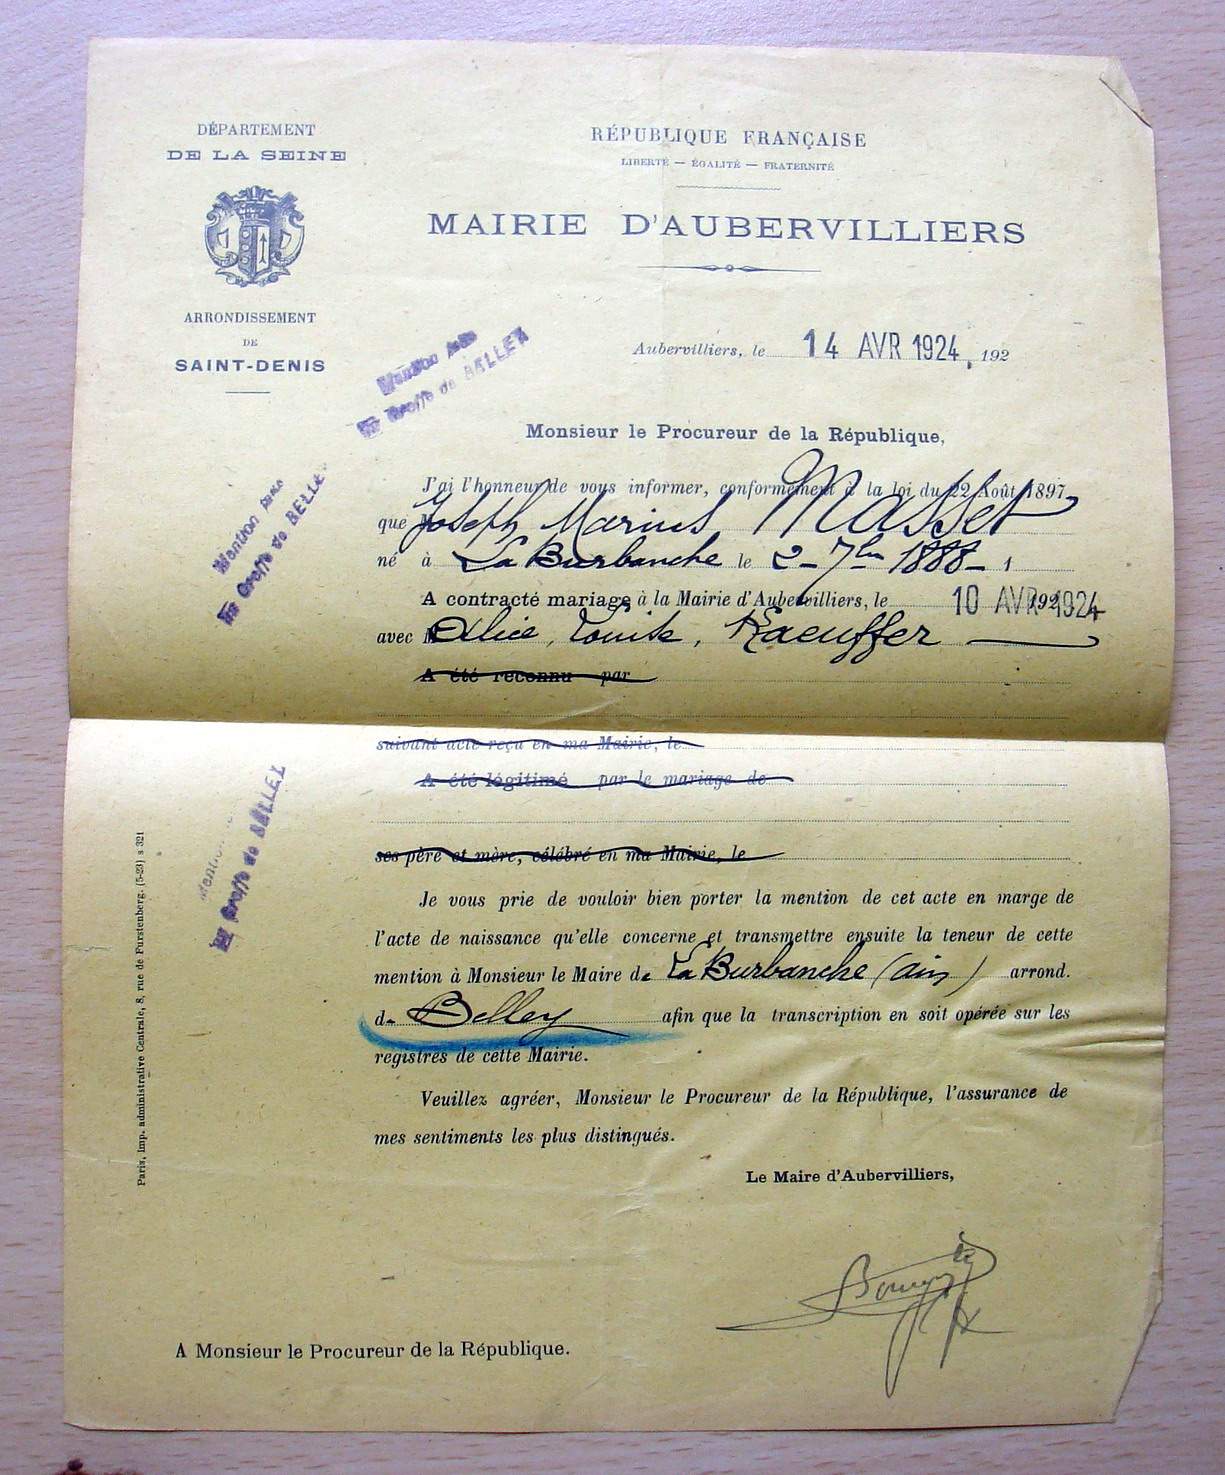 DÉPARTEMENT
DE LA SEINE
ARRONDISSEMENT
DE
SAINT-DENIS
RÉPUBLIQUE FRANÇAISE
LIBERTÉ — ÉGALITÉ — FRATERNITÉ
MAIRIE D'AUBERVILLIERS
Aubervilliers, le 14 AVR 1924. 192
Mention
Greffe de BELLEY
Mention
Greffe de BELLE
Greffe de BELLEY
Monsieur le Procureur de la République,
J'ai l'honneur de vous informer, conformément à la loi du 22 Août 1897,
que M Joseph Marius Masset
né à La Burbanche le 2 - 7bre 1888 - 1
A contracté mariage à la Mairie d'Aubervilliers, le 10 AVR 1924 192
avec M Alice, Louise, Kaeuffer
A été reconnu par
suivant acte reçu en ma Mairie, le
A été légitimé par le mariage de
ses père et mère, célébré en ma Mairie, le
Je vous prie de vouloir bien porter la mention de cet acte en marge de
l'acte de naissance qu'elle concerne et transmettre ensuite la teneur de cette
mention à Monsieur le Maire de La Burbanche (ain) arrond.
de Belley afin que la transcription en soit opérée sur les
registres de cette Mairie.
Veuillez agréer, Monsieur le Procureur de la République, l'assurance de
mes sentiments les plus distingués.
Le Maire d'Aubervilliers,
A Monsieur le Procureur de la République.
Paris, Imp. administrative Centrale, 8, rue de Furstenberg. (5-23) s 321